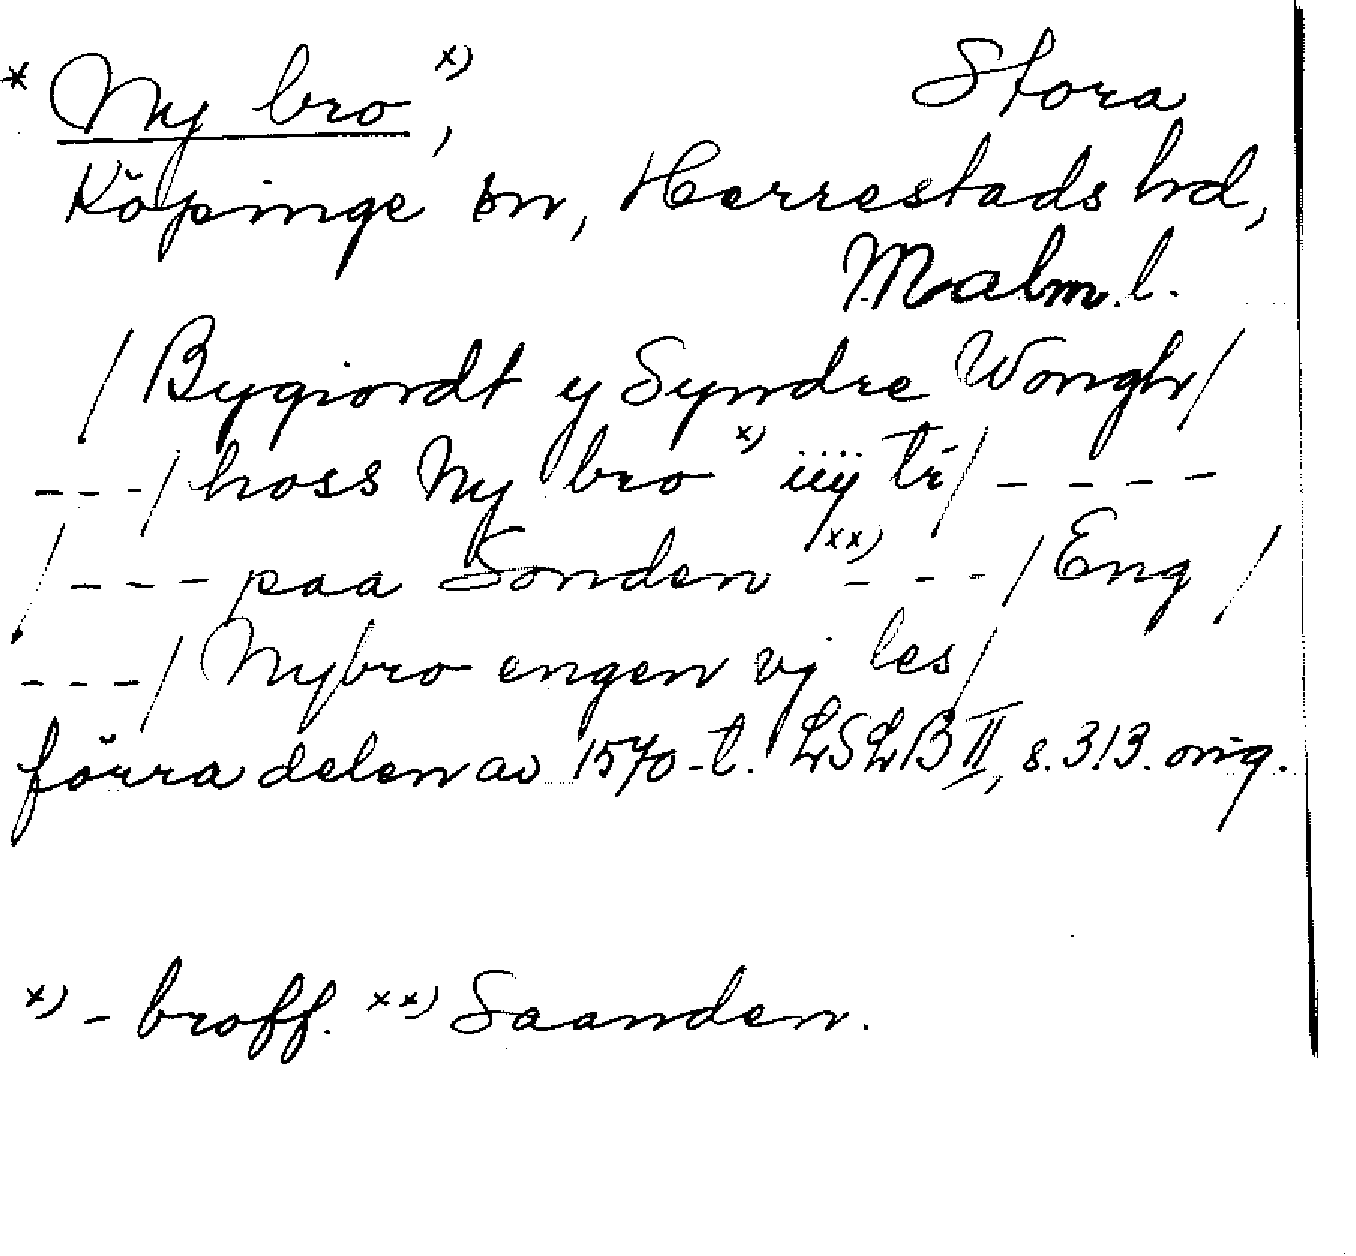 * Ny bro x), Stora
Köpinge sn, Herrestads hd,
Malm. l.
/ Bygiordt y Syndre Wongh /
- - - / hoss Ny bro x) iiij tr / - - - -
/ - - - paa Sonden xx) - - - / Eng /
- - - / Nybro engen vj les /
förra delen av 1570-t. LSLB II, s. 313. orig.
x) - broff. xx) Saanden.